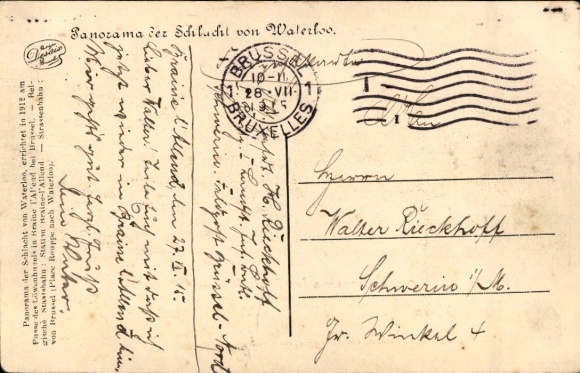 Panorama der Schlacht von Waterloo.
Panorama der Schlacht von Waterloo, errichtet in 1912 am
Fusse des Löwenhuzels in Braine l'Alleud bei Brussel. — Bel-
gische Staasbahn: Station Braine-l'Alleud. — Strassenbahn:
von Brussel (Place Rouppe nach Waterloo).
Desaix
BRUSSEL
1 10-11 1
28 VII
1915
BRUXELLES
Braine l'Alleud, den 27. 15.
Lieber Walter! Teile Euch mit, daß ich
jetzt wieder in Braine l'Alleud bin.
Mir geht's gut. Herzl. Gruß
Dein Vater.
H. Rieckhoff
Schwerin
Brüssel-Nord
Herrn
Walter Rieckhoff
Schwerin i/M.
Gr. Winkel 4